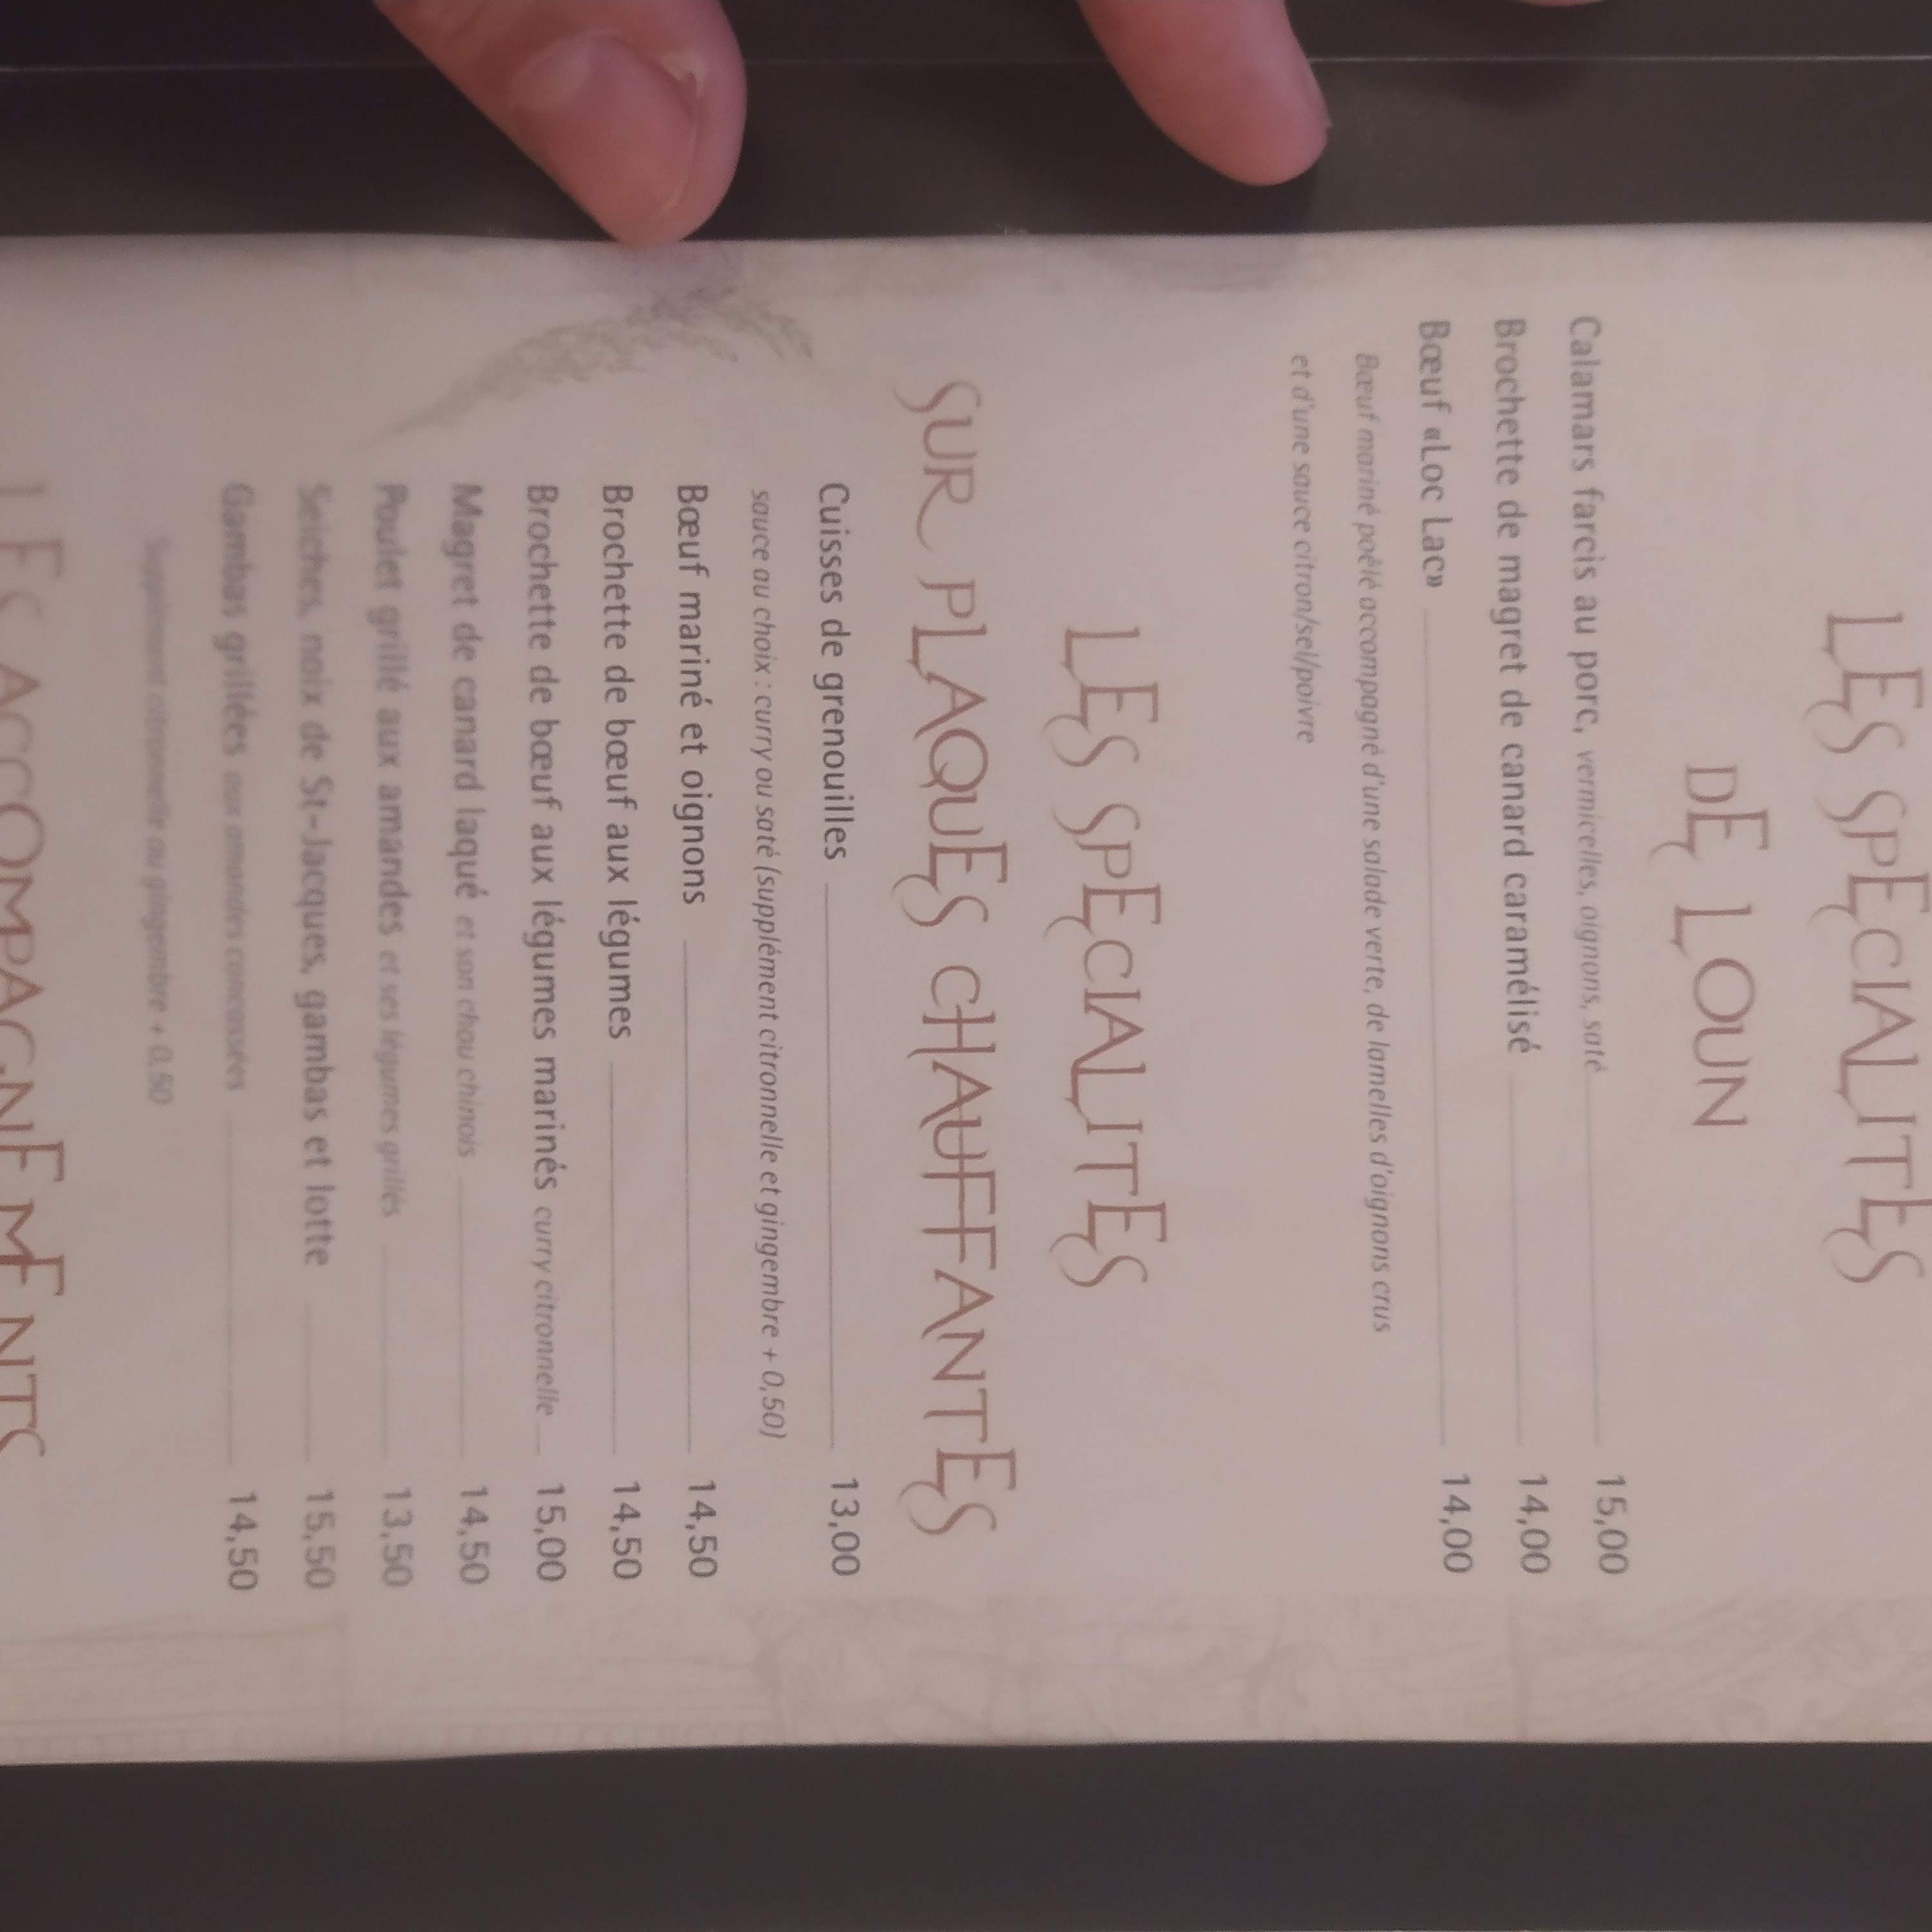 LES SPECIALITES
DE LOUN
Calamars farcis au porc, vermicelles, oignons, saté 15,00
Brochette de magret de canard caramélisé 14,00
Bœuf «Loc Lac» 14,00
Bœuf mariné poêlé accompagné d'une salade verte, de lamelles d'oignons crus
et d'une sauce citron/sel/poivre
LES SPECIALITES
SUR PLAQUES CHAUFFANTES
Cuisses de grenouilles 13,00
sauce au choix : curry ou saté (supplément citronnelle et gingembre + 0,50)
Bœuf mariné et oignons 14,50
Brochette de bœuf aux légumes 14,50
Brochette de bœuf aux légumes marinés curry citronnelle 15,00
Magret de canard laqué et son chou chinois 14,50
Poulet grillé aux amandes et ses légumes grillés 13,50
Seiches, noix de St-Jacques, gambas et lotte 15,50
Gambas grillées aux amandes concassées 14,50
Supplément citronnelle ou gingembre + 0,50
LES ACCOMPAGNEMENTS